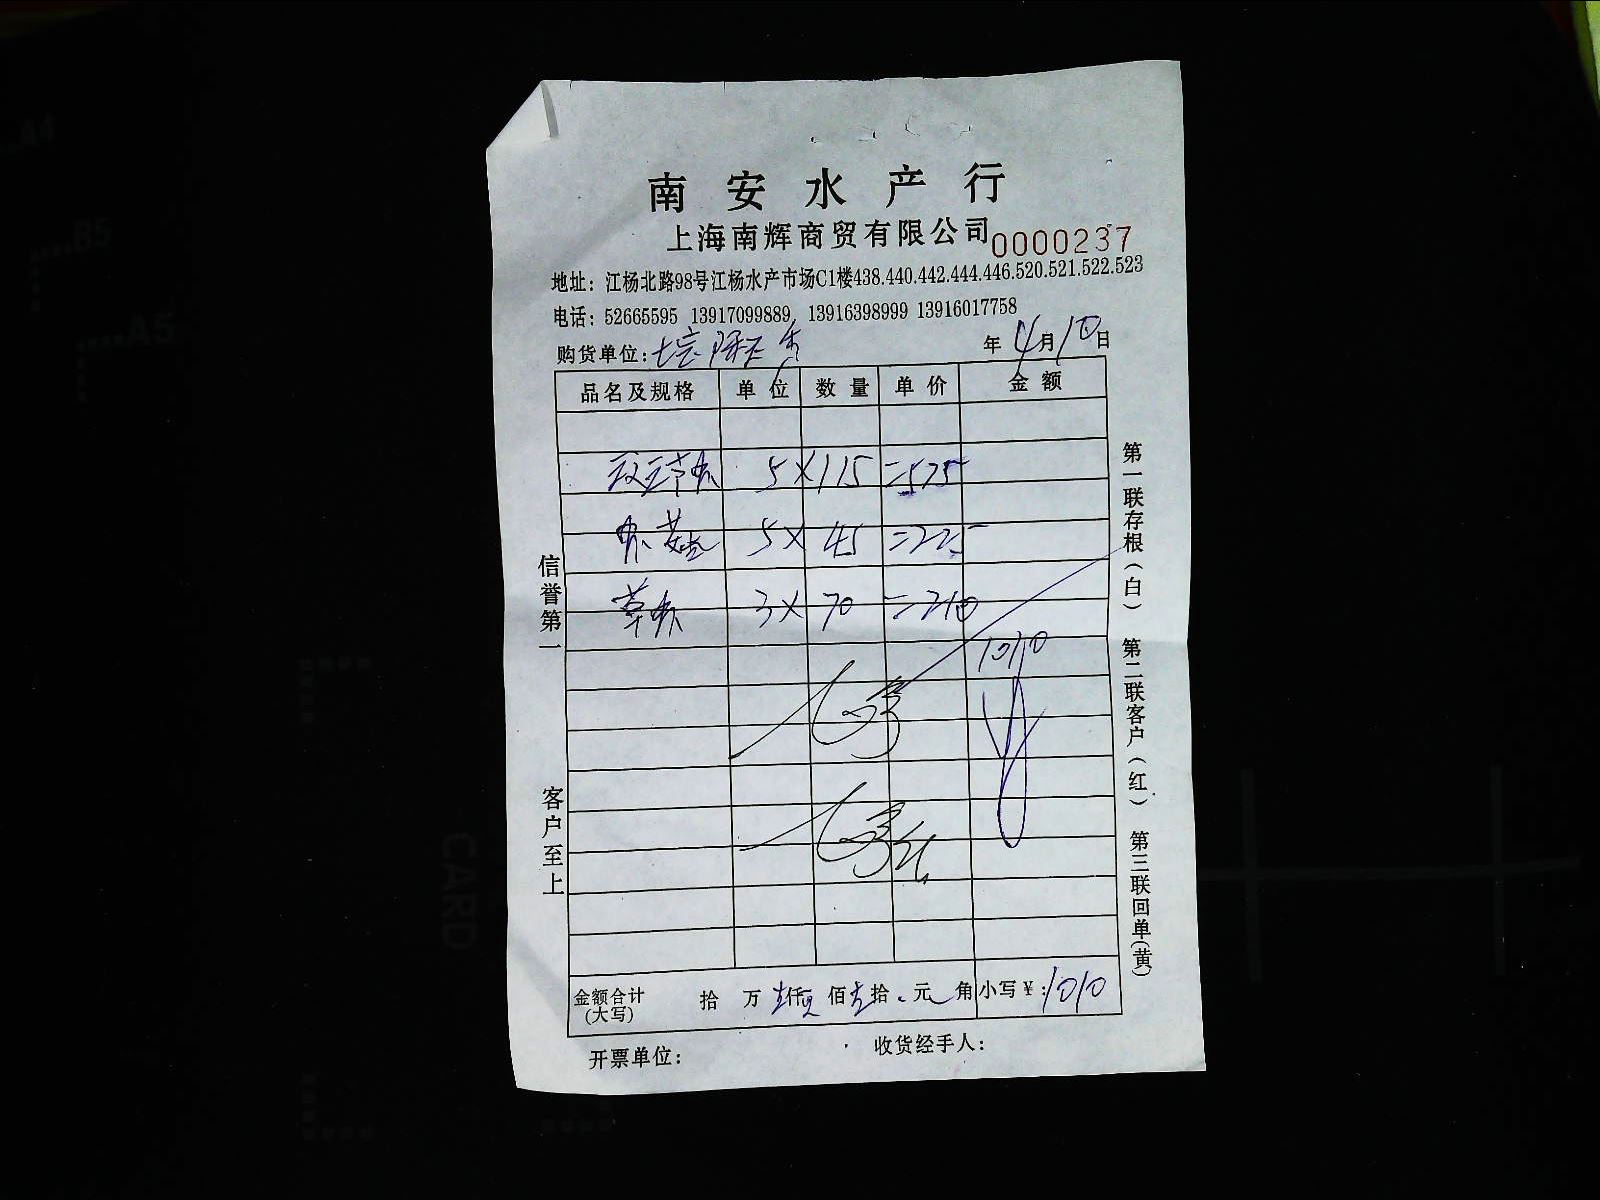 南安水产行
上海南辉商贸有限公司 0000237
地址：江杨北路98号江杨水产市场C1楼438.440.442.444.446.520.521.522.523
电话：52665595 13917099889 13916398999 13916017758
购货单位：
年 4月10日
品名及规格 单位 数量 单价 金额
5×115=575
5×45=225
草虾 3×70=210
1010
金额合计 拾 万 壹仟 佰壹拾 元 角 小写￥：1010
(大写)
开票单位： 收货经手人：
信誉第一 客户至上
第一联存根（白） 第二联客户（红） 第三联回单(黄)
A4
B5
A5
CARD